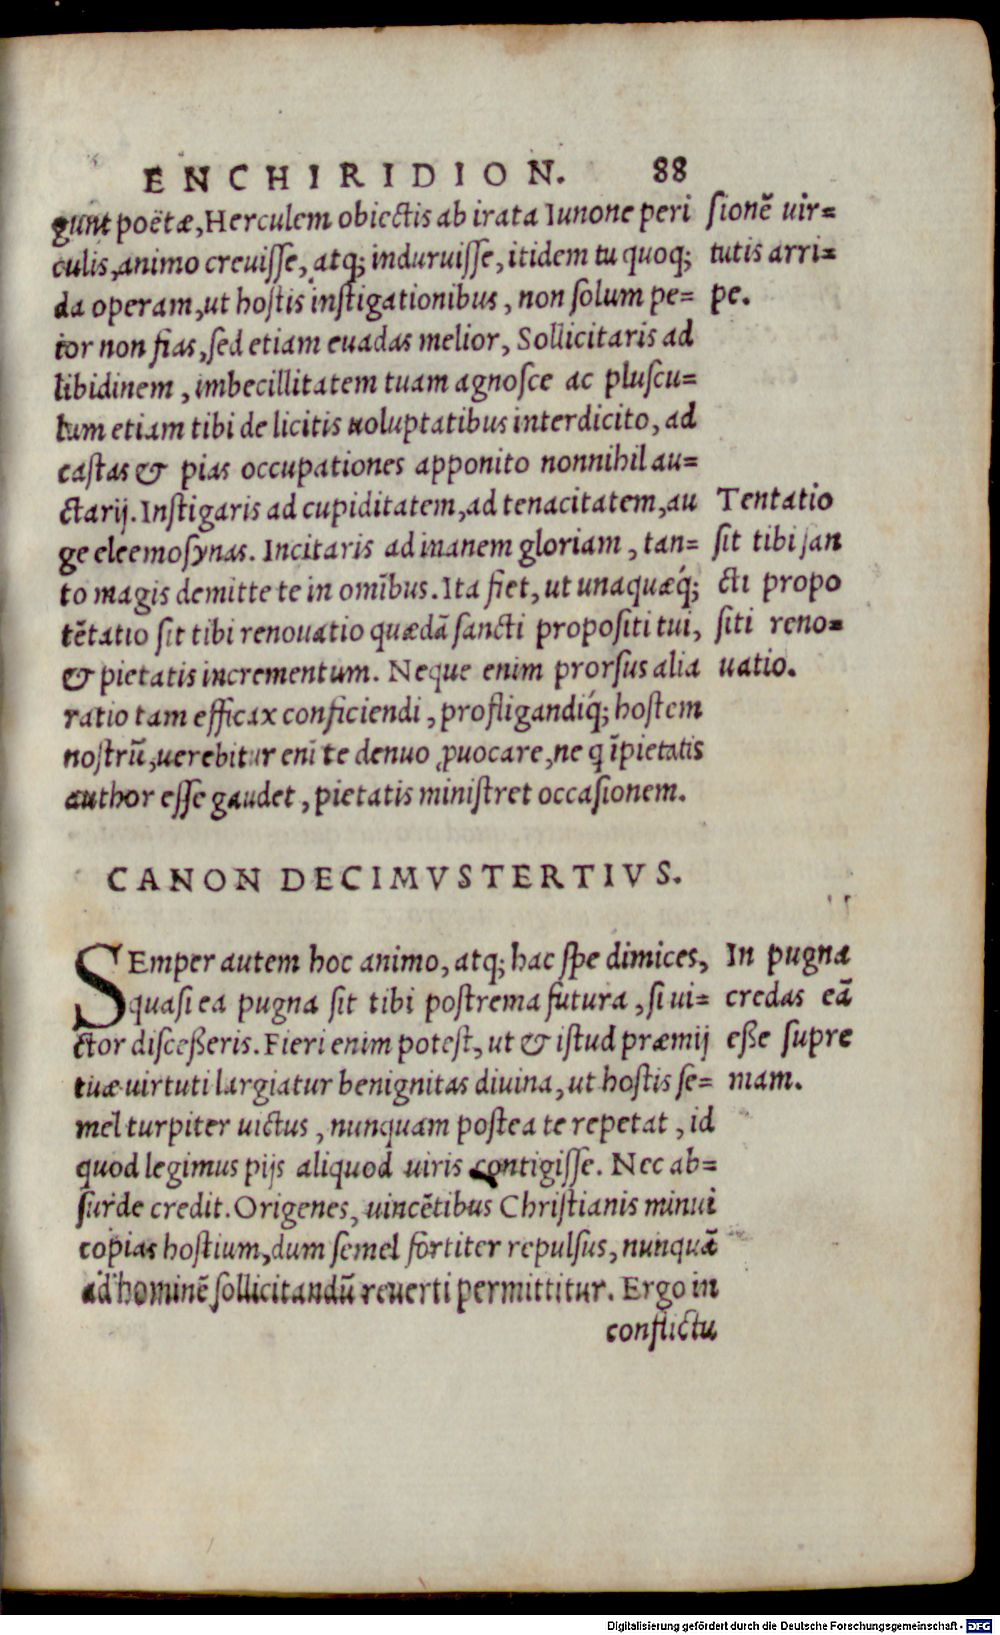 ENCHIRIDION. 88
gunt poëtæ, Herculem obiectis ab irata Iunone peri
culis, animo creuisse, atq; induruisse, itidem tu quoq;
da operam, ut hostis instigationibus, non solum pe=
ior non fias, sed etiam euadas melior, Sollicitaris ad
libidinem, imbecillitatem tuam agnosce ac pluscu=
lum etiam tibi de licitis uoluptatibus interdicito, ad
castas & pias occupationes apponito nonnihil au=
ctarij. Instigaris ad cupiditatem, ad tenacitatem, au
ge eleemosynas. Incitaris ad inanem gloriam, tan=
to magis demitte te in omĩbus. Ita fiet, ut unaquæq́;
tẽtatio sit tibi renouatio quædã sancti propositi tui,
& pietatis incrementum. Neque enim prorsus alia
ratio tam efficax conficiendi, profligandiq́; hostem
nostrũ, uerebitur enĩ te denuo ꝓuocare, ne q ĩpietatis
author esse gaudet, pietatis ministret occasionem.
sionẽ uir=
tutis arri=
pe.
Tentatio
sit tibi san
cti propo
siti reno=
uatio.
CANON DECIMVSTERTIVS.
SEmper autem hoc animo, atq; hac spe dimices,
quasi ea pugna sit tibi postrema futura, si ui=
ctor discesseris. Fieri enim potest, ut & istud præmij
tuæ uirtuti largiatur benignitas diuina, ut hostis se=
mel turpiter uictus, nunquam postea te repetat, id
quod legimus pijs aliquod uiris contigisse. Nec ab=
surde credit. Origenes, uincẽtibus Christianis minui
copias hostium, dum semel fortiter repulsus, nunquã
ad hominẽ sollicitandũ reuerti permittitur. Ergo in
conflictu
In pugna
credas eã
esse supre
mam.
Digitalisierung gefördert durch die Deutsche Forschungsgemeinschaft - DFG